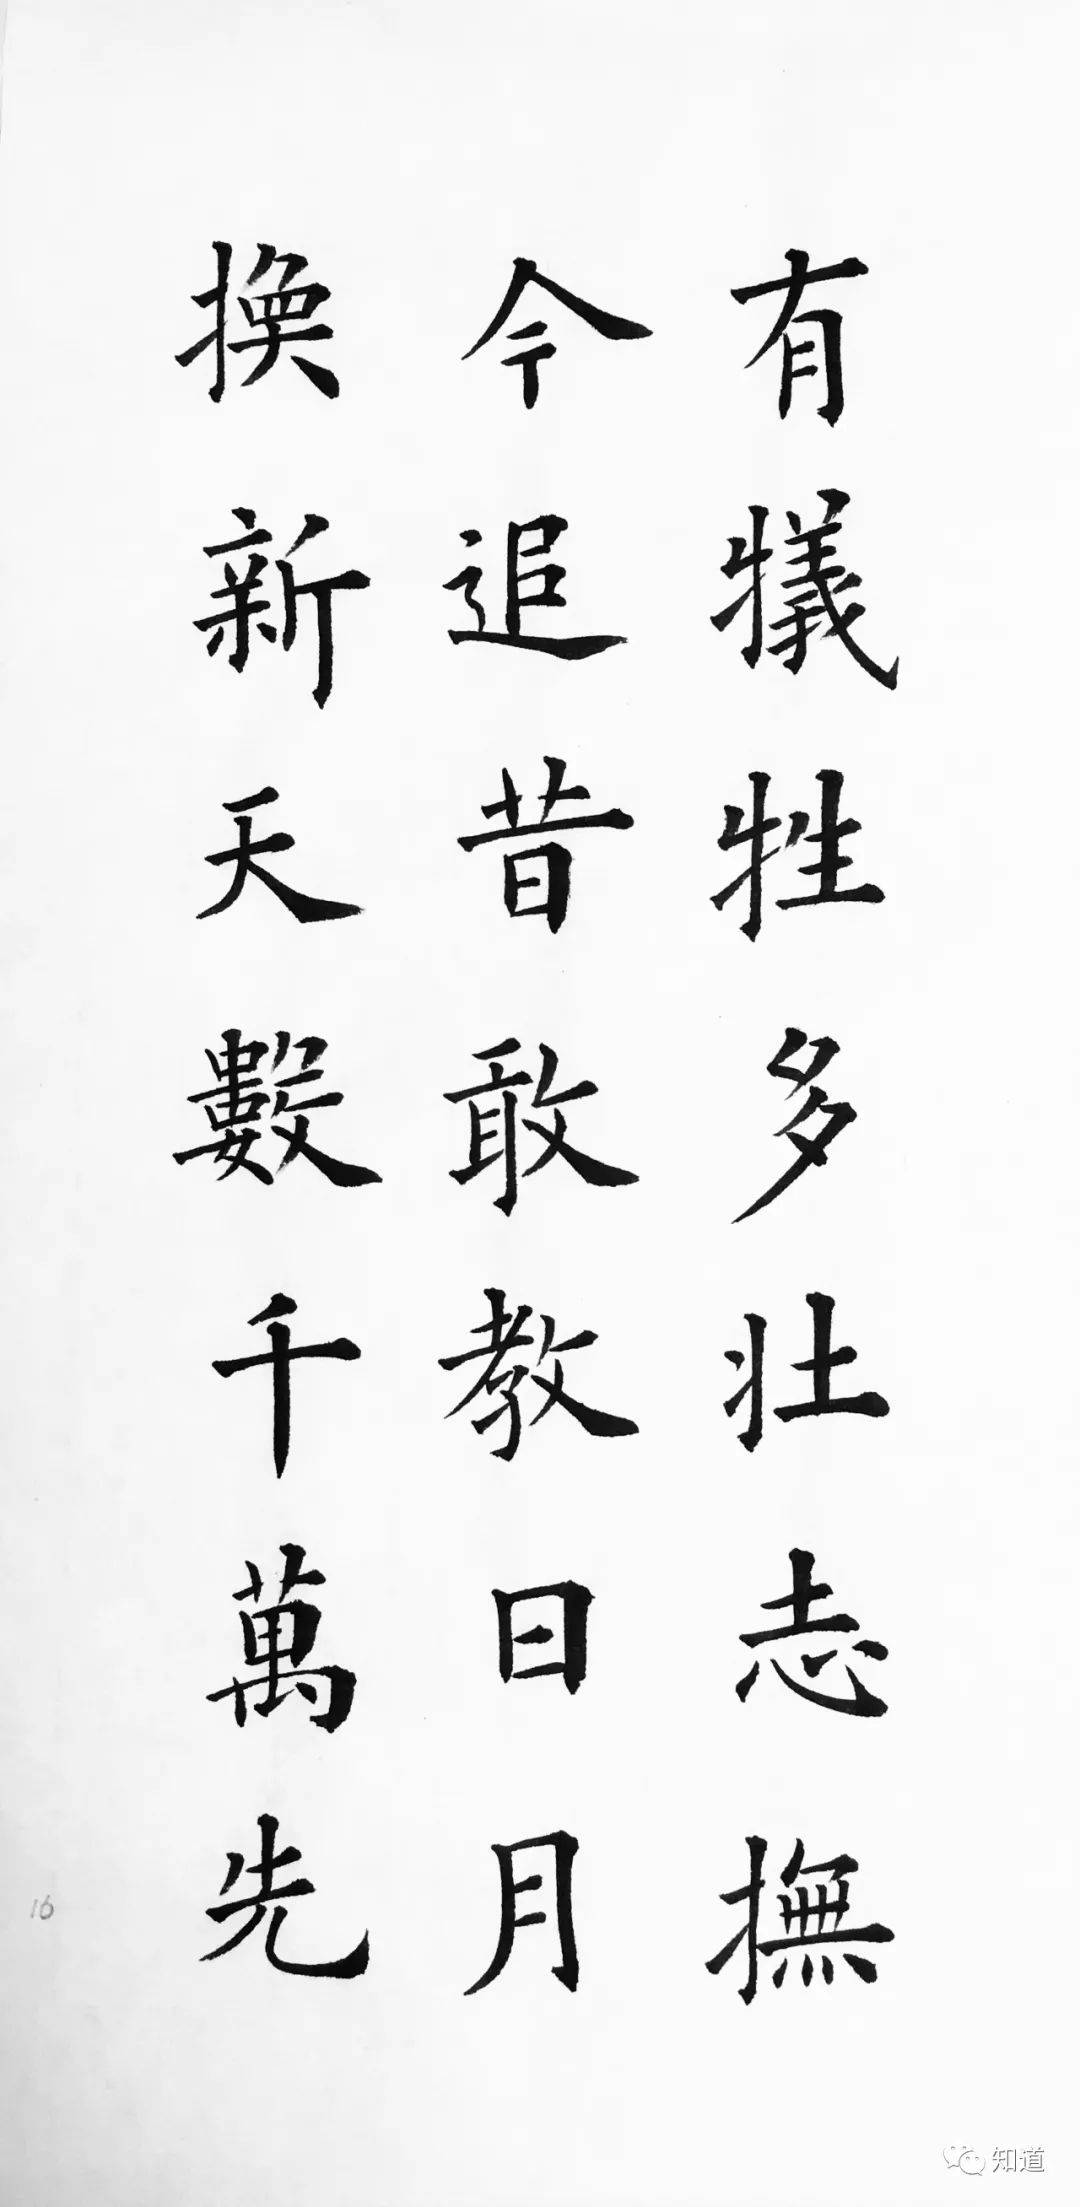 有犠牲多壮志撫
今追昔敢教日月
換新天數千萬先
16
知道